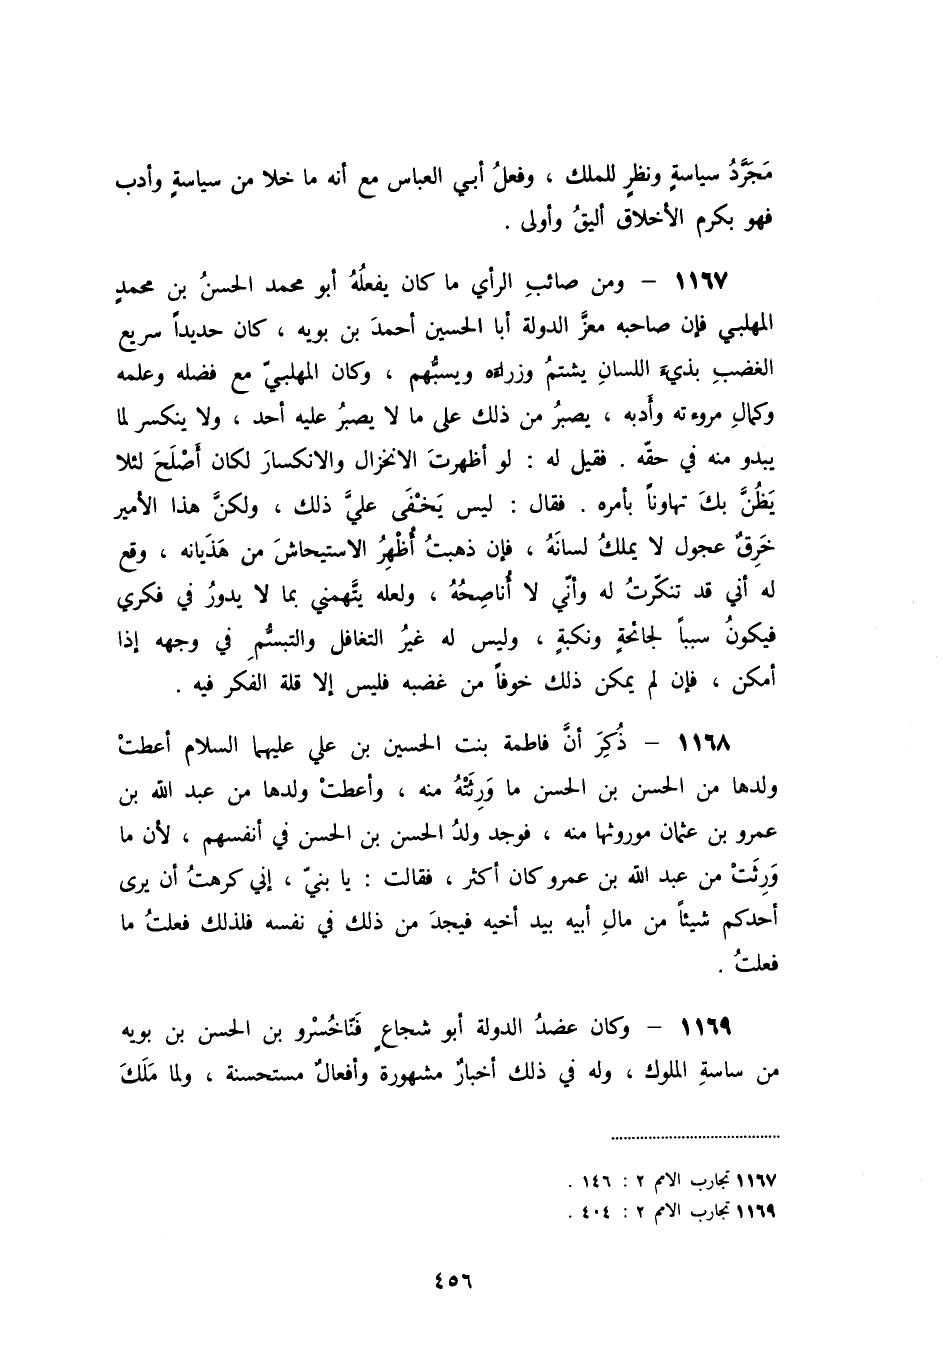 مَجَرَّدُ سياسةٍ ونظرٍ للملك ، وفعلُ أبي العباس مع أنه ما خلا من سياسةٍ وأدب
فهو بكرم الأخلاق أليقُ وأولى .
١١٦٧ – ومن صائبِ الرأي ما كان يفعلُهُ أبو محمد الحسنُ بن محمدٍ
المهلبي فإن صاحبه معزَّ الدولة أبا الحسين أحمدَ بن بويه ، كان حديداً سريع
الغضبِ بذيءَ اللسانِ يشتمُ وزراءه ويسبُّهم ، وكان المهلبيّ مع فضله وعلمه
وكمالِ مروءته وأَدبه ، يصبرُ من ذلك على ما لا يصبرُ عليه أحد ، ولا ينكسر لما
يبدو منه في حقّه . فقيل له : لو أظهرتَ الانخزال والانكسارَ لكان أَصْلَحَ لئلا
يَظُنَّ بكَ تهاوناً بأمره . فقال : ليس يَخْفَى عليَّ ذلك ، ولكنَّ هذا الأمير
خَرِقٌ عجول لا يملكُ لسانَهُ ، فإن ذهبتُ أُظْهِرُ الاستيحاشَ من هَذَيانه ، وقع
له أني قد تنكّرتُ له وأنّي لا أُناصِحُهُ ، ولعله يتَّهمني بما لا يدورُ في فكري
فيكونُ سبباً لجائحةٍ ونكبةٍ ، وليس له غيرُ التغافل والتبسُّمِ في وجهه إذا
أمكن ، فإن لم يمكن ذلك خوفاً من غضبه فليس إلا قلة الفكر فيه .
١١٦٨ – ذُكِرَ أنَّ فاطمة بنت الحسين بن علي عليهما السلام أعطتْ
ولدها من الحسن بن الحسن ما وَرِثَتْهُ منه ، وأعطتْ ولدها من عبد الله بن
عمرو بن عثمان موروثها منه ، فوجد ولدُ الحسن بن الحسن في أنفسهم ، لأن ما
وَرِثَتْ من عبد الله بن عمرو كان أكثر ، فقالت : يا بنيّ ، إني كرهتُ أن يرى
أحدكم شيئاً من مالِ أبيه بيد أخيه فيجدَ من ذلك في نفسه فلذلك فعلتُ ما
فعلتُ .
١١٦٩ – وكان عضدُ الدولة أبو شجاعٍ فَنّاخُسْرو بن الحسن بن بويه
من ساسةِ الملوك ، وله في ذلك أخبارٌ مشهورة وأفعالٌ مستحسنة ، ولما مَلَكَ
١١٦٧ تجارب الامم ٢ : ١٤٦ .
١١٦٩ تجارب الامم ٢ : ٤٠٤ .
٤٥٦